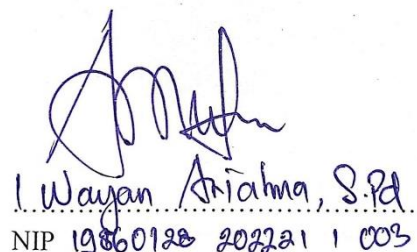 I Wayan Ariatma, S.Pd
NIP 19860128 202221 1 003